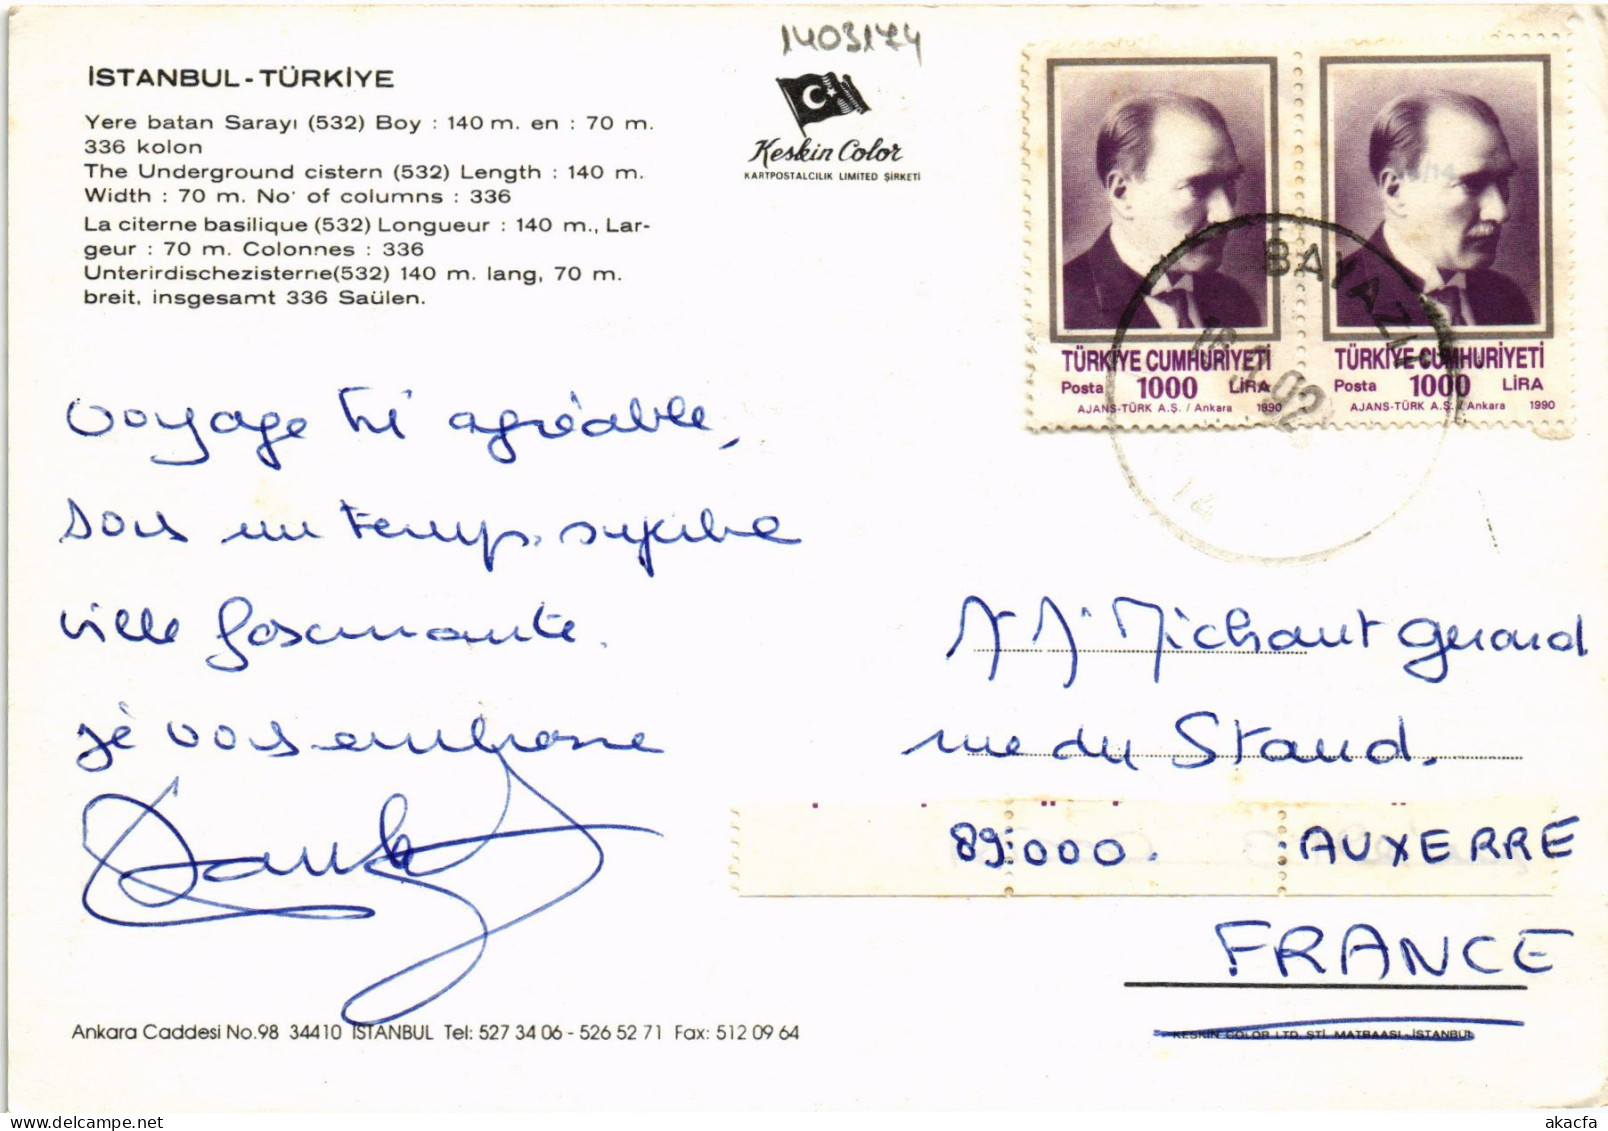 1403174
İSTANBUL - TÜRKİYE
Yere batan Sarayı (532) Boy : 140 m. en : 70 m.
336 kolon
The Underground cistern (532) Length : 140 m.
Width : 70 m. No· of columns : 336
La citerne basilique (532) Longueur : 140 m., Lar-
geur : 70 m. Colonnes : 336
Unterirdischezisterne(532) 140 m. lang, 70 m.
breit, insgesamt 336 Saülen.
Keskin Color
KARTPOSTALCILIK LIMITED ŞİRKETİ
TÜRKİYE CUMHURİYETİ
Posta 1000 LİRA
AJANS-TÜRK A.Ş. / Ankara 1990
TÜRKİYE CUMHURİYETİ
Posta 1000 LİRA
AJANS-TÜRK A.Ş. / Ankara 1990
BAYAZIT
Voyage très agréable,
sous un temps superbe
ville fascinante.
je vous embrasse
Michaut Gerard
rue du Stand.
89.000. AUXERRE
FRANCE
Ankara Caddesi No.98 34410 İSTANBUL Tel: 527 34 06 - 526 52 71 Fax: 512 09 64
KESKİN COLOR LTD. ŞTİ. MATBAASI-İSTANBUL
akacfa